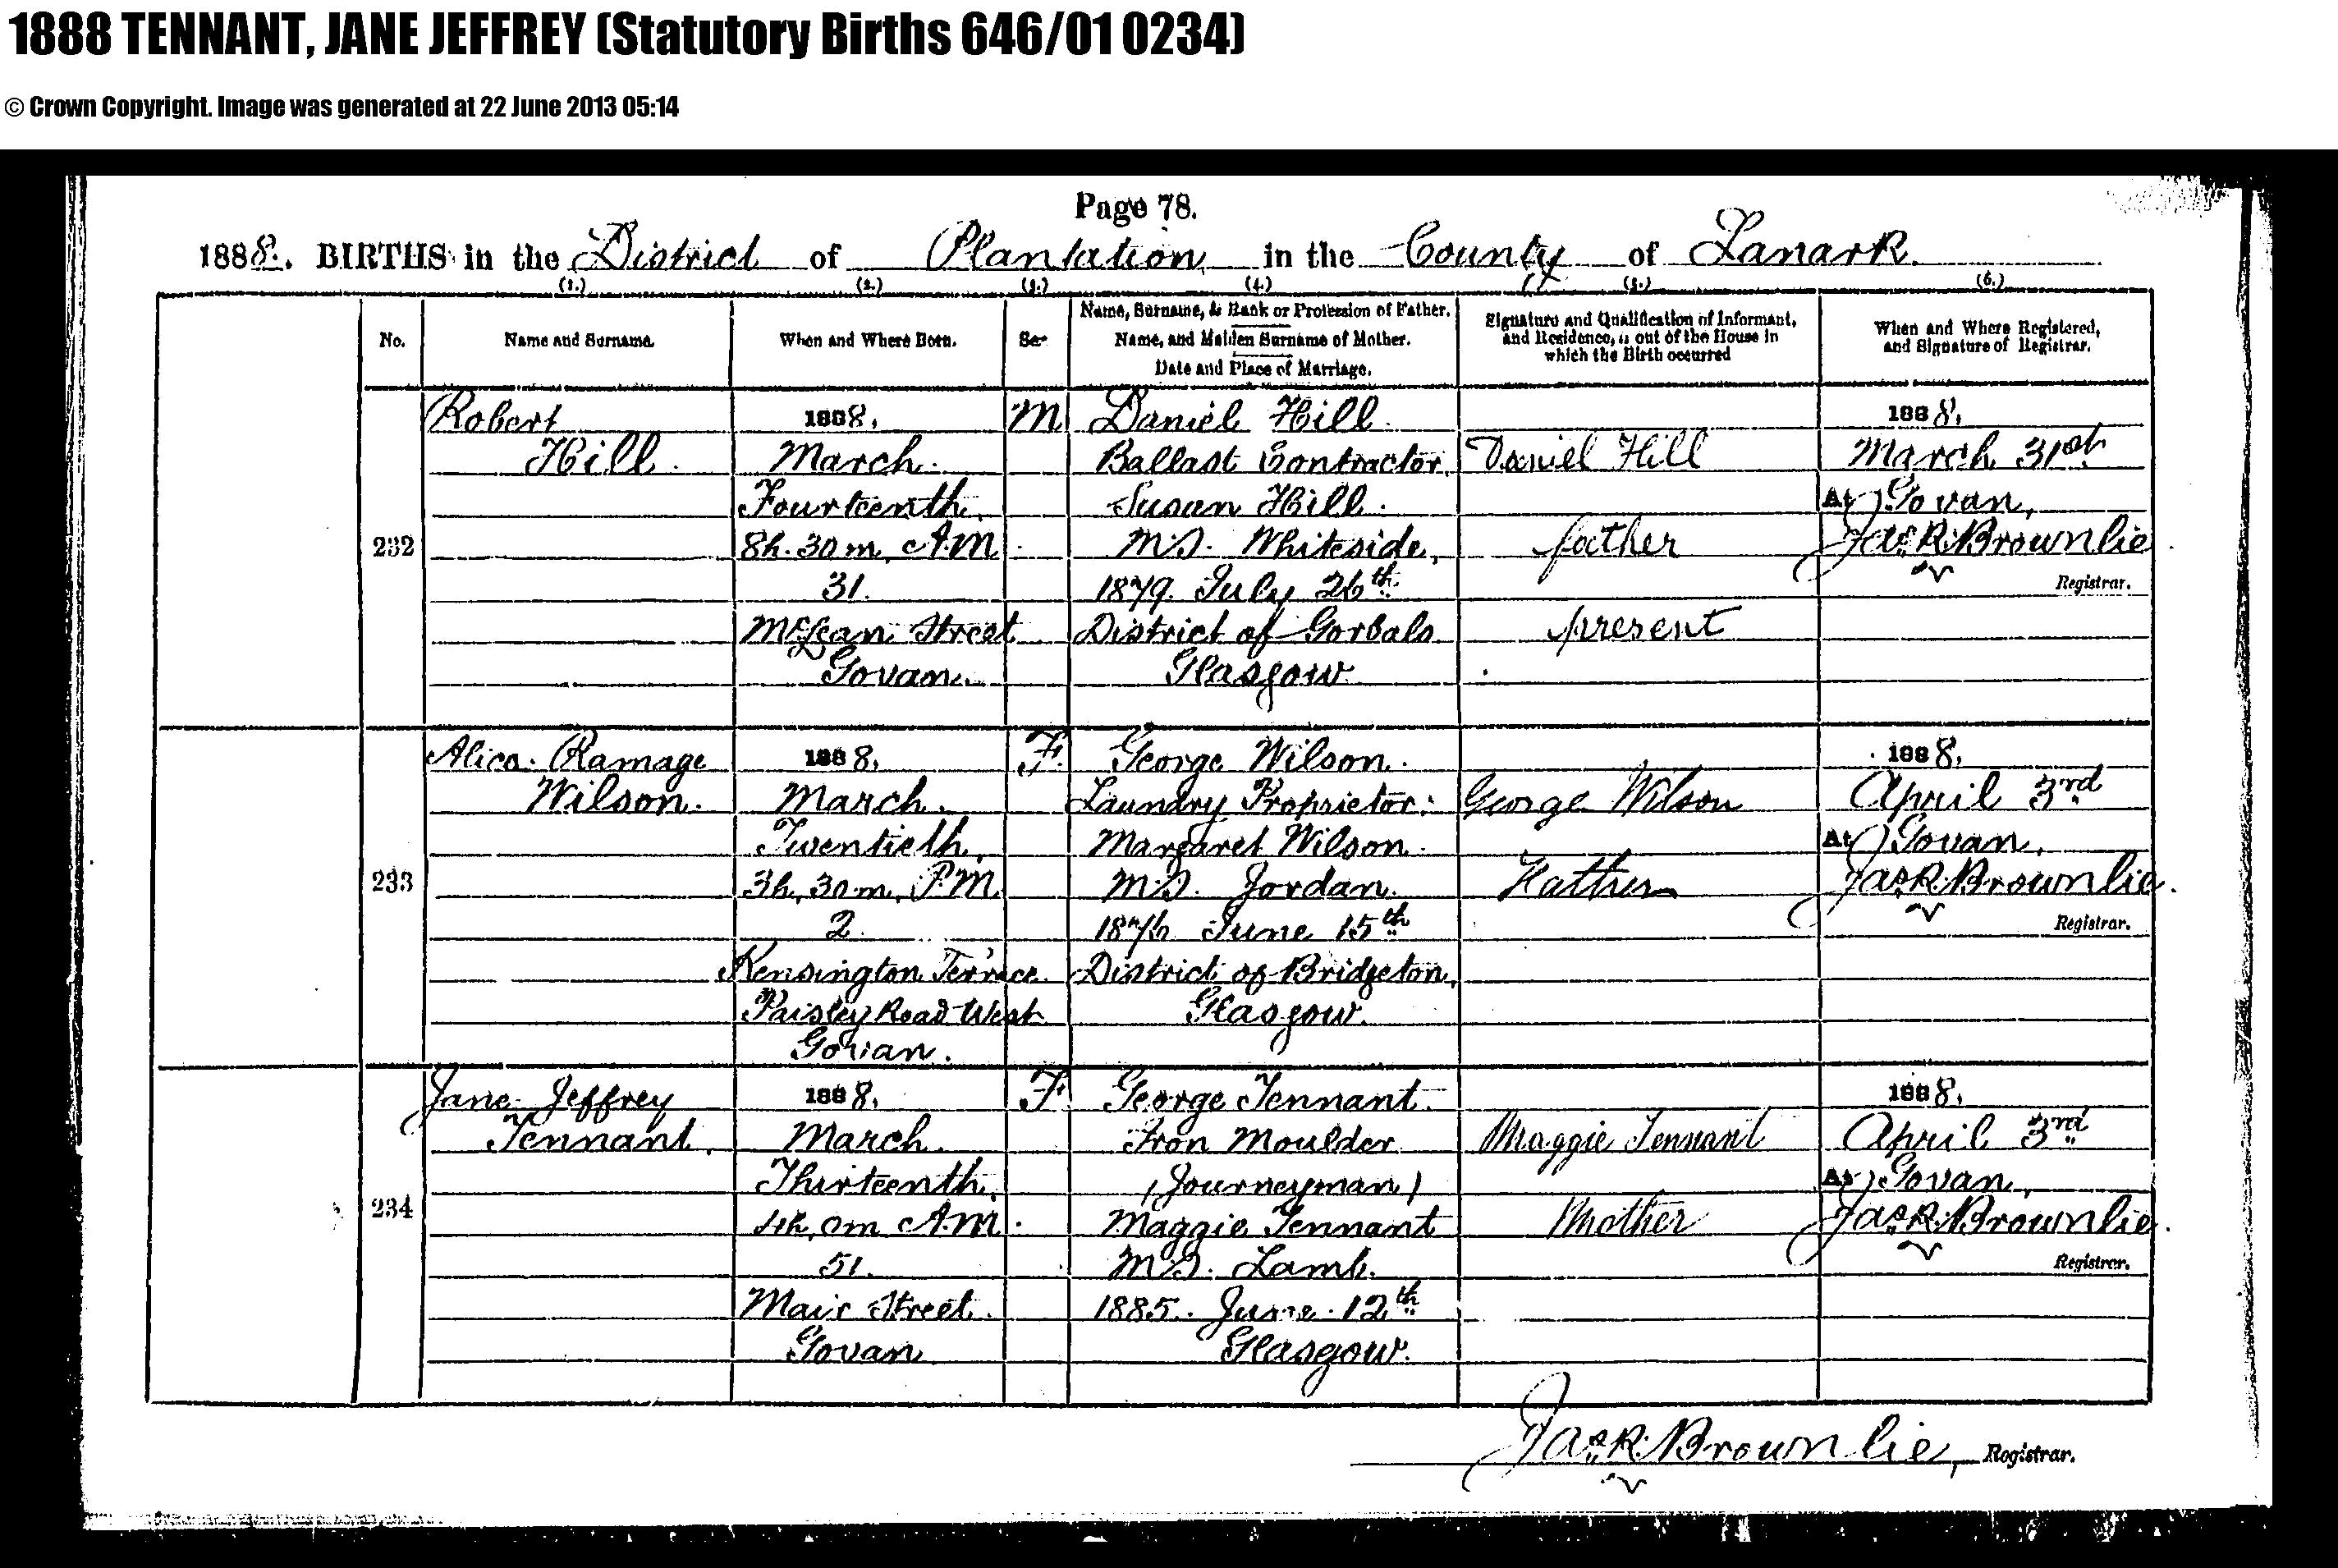 1888 TENNANT, JANE JEFFREY (Statutory Births 646/01 0234)
© Crown Copyright. Image was generated at 22 June 2013 05:14
Page 78.
1888. BIRTHS in the District of Plantation in the County of Lanark.
(1.) (2.) (3.) (4.) (5.) (6.)
No.
Name and Surname.
When and Where Born.
Sex
Name, Surname, & Rank or Profession of Father.
Name, and Maiden Surname of Mother.
Date and Place of Marriage.
Signature and Qualification of Informant,
and Residence, if out of the House in
which the Birth occurred
When and Where Registered,
and Signature of Registrar.
232
Robert
Hill.
1888.
March.
Fourteenth.
8h. 30m. A.M.
31.
McLean Street
Govan.
M
Daniel Hill.
Ballast Contractor
Susan Hill.
M.S. Whiteside,
1879. July 26th
District of Gorbals
Glasgow
Daniel Hill
father
present
1888.
March 31st
At Govan,
Jas. R. Brownlie
Registrar.
233
Alice Ramage
Wilson.
1888.
March.
Twentieth.
3h. 30m. P.M.
2.
Kensington Terrace
Paisley Road West
Govan.
F.
George Wilson.
Laundry Proprietor.
Margaret Wilson.
M.S. Jordan.
1876 June 15th
District of Bridgeton,
Glasgow.
George Wilson
Father
1888.
April 3rd
At Govan,
Jas. R. Brownlie.
Registrar.
234
Jane Jeffrey
Tennant.
1888.
March.
Thirteenth.
4h. 0m A.M.
51.
Mair Street.
Govan
F.
George Tennant.
Iron Moulder
(Journeyman)
Maggie Tennant
M.S. Lamb.
1885. June 12th
Glasgow.
Maggie Tennant
Mother
1888.
April 3rd
At Govan,
Jas. R. Brownlie.
Registrar.
Jas. R. Brownlie, Registrar.